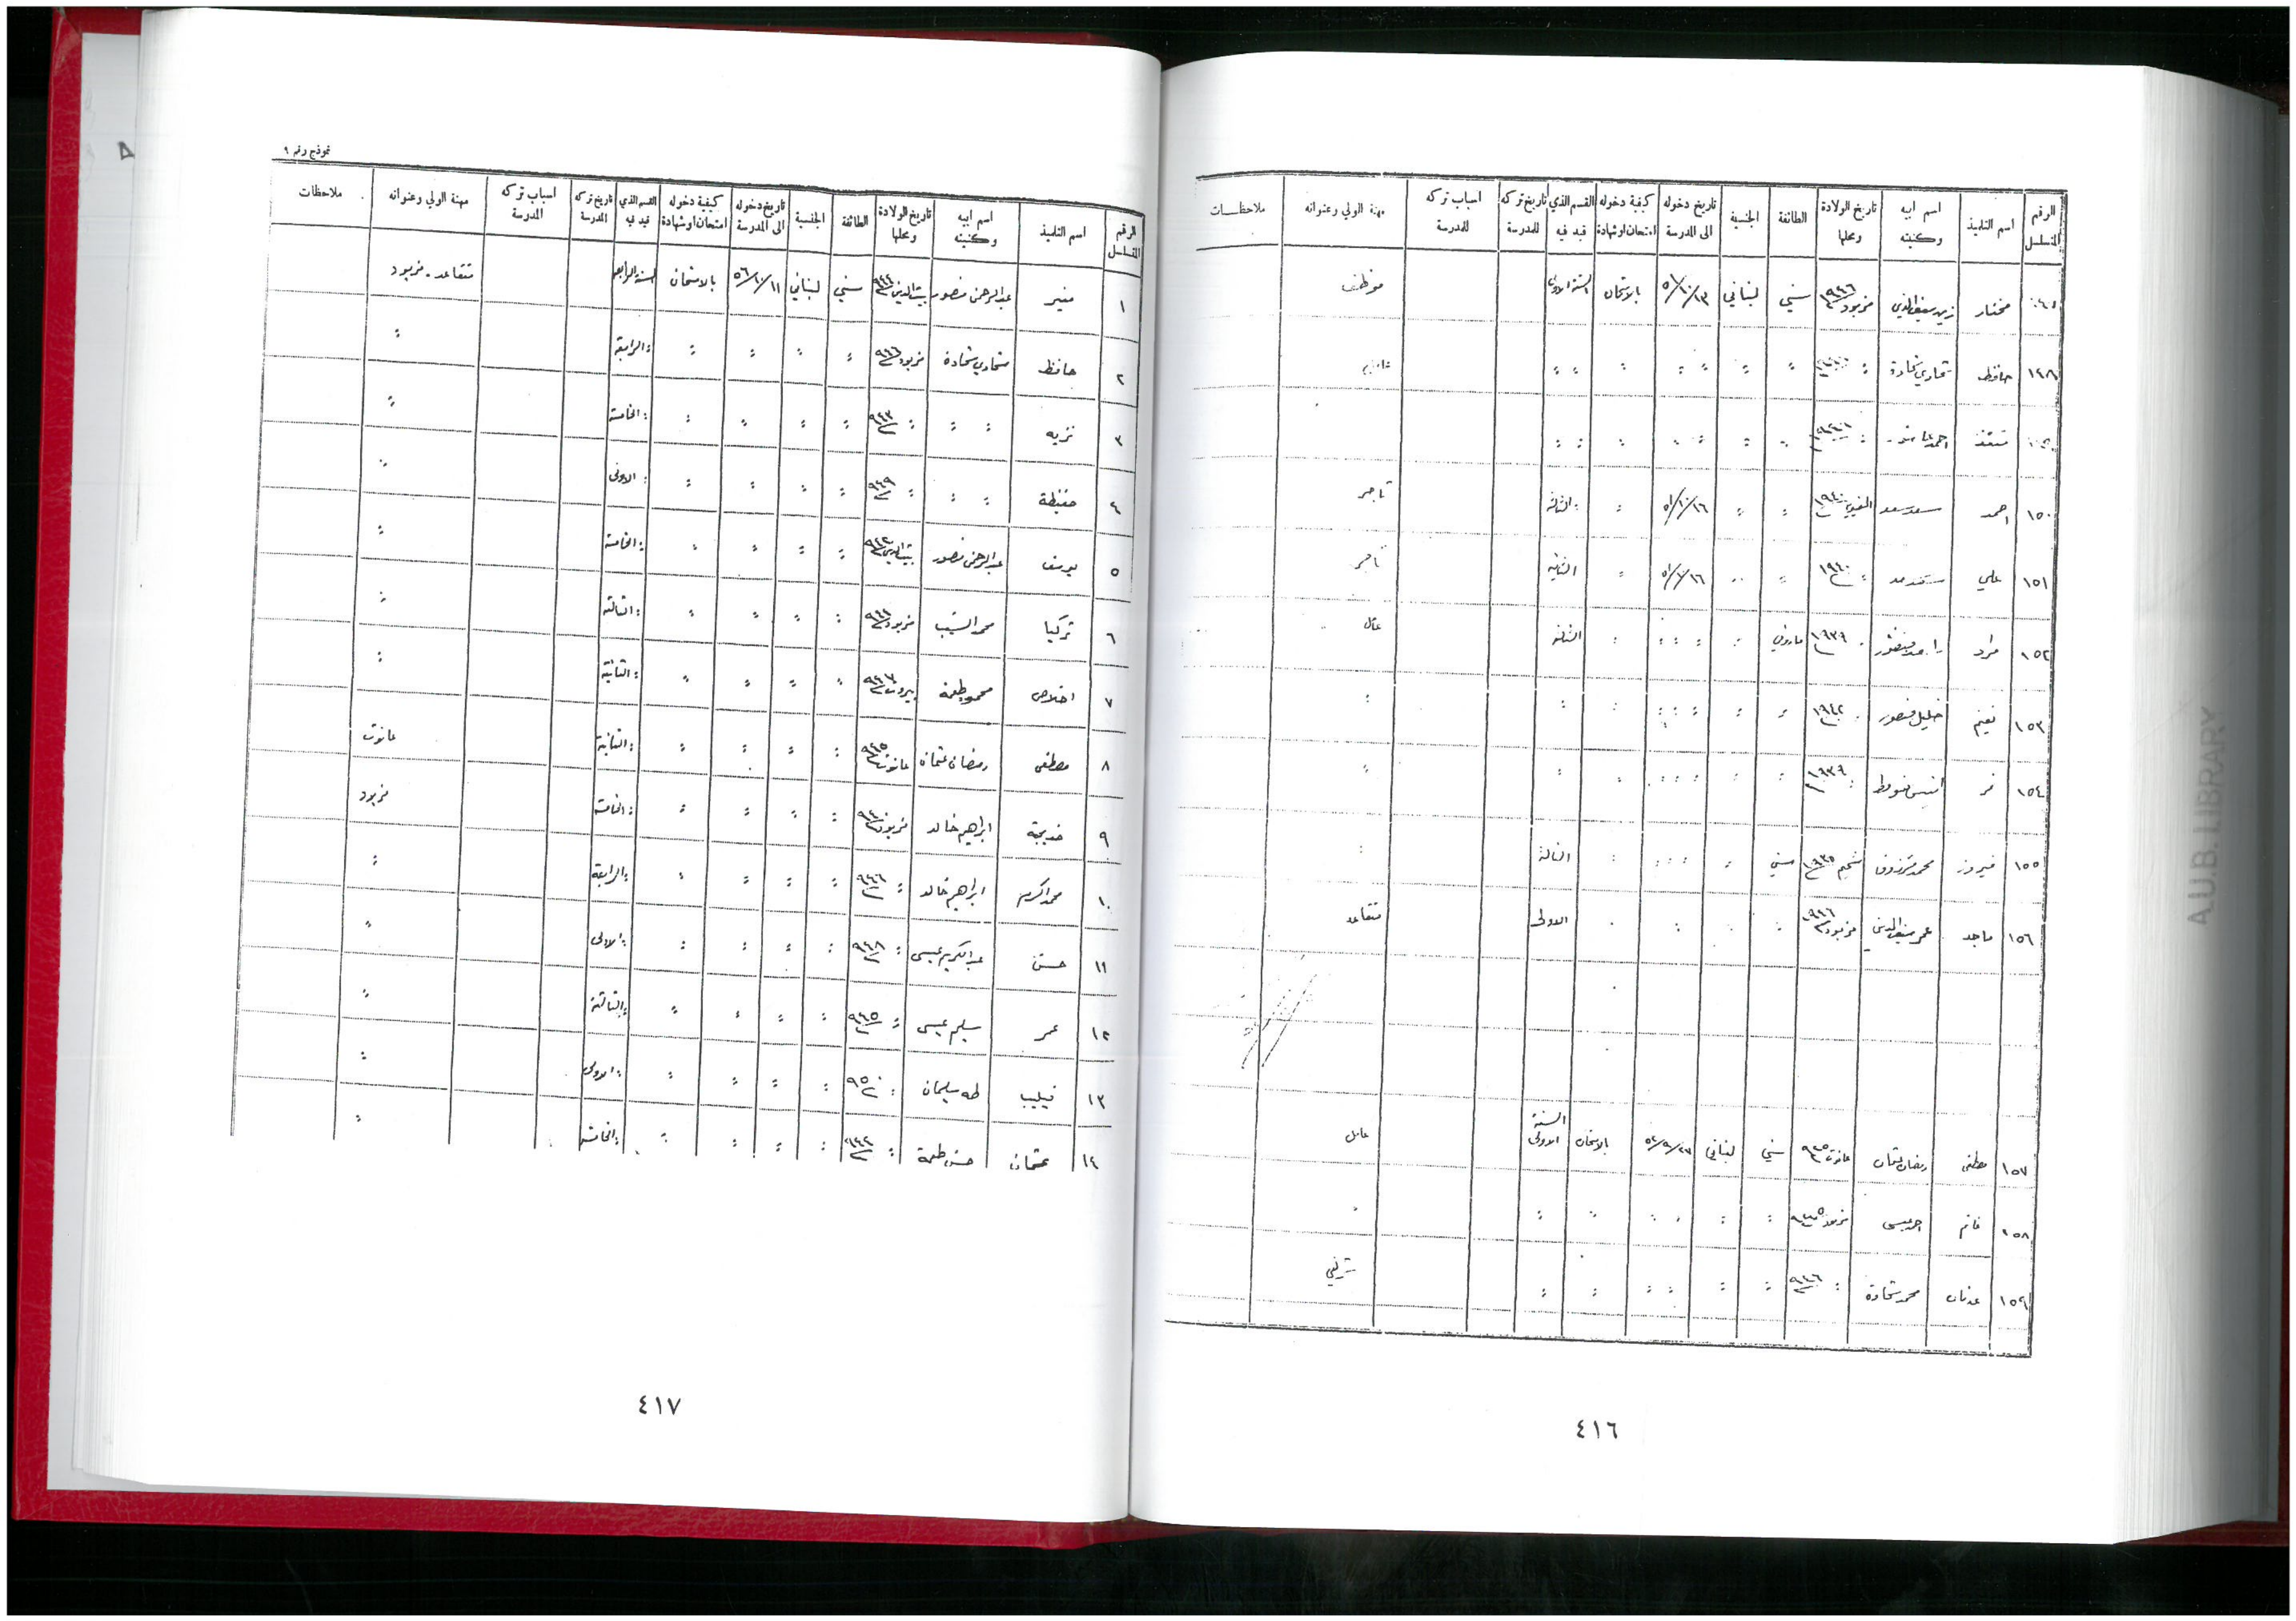 الرقم المتسلسل | اسم التلميذ | اسم ابيه وكنيته | تاريخ الولادة ومحلها | الطائفة | الجنسية | تاريخ دخوله الى المدرسة | كيفية دخوله امتحان او شهادة | القسم الذي قيد فيه | تاريخ تركه للمدرسة | اسباب تركه للمدرسة | مهنة الولي وعنوانه | ملاحظات
مختار | زين سيف الدين | مزبود ١٩٤٦ | سني | لبناني | بالامتحان | السنة الاولى | موظف
١٤٨ | حافظ | شحادة
منقذ | احمد
١٥٠ | احمد | سعد سعد | ١٩٤٠ | ٥١/١٠/١٦ | الثالثة | تاجر
١٥١ | علي | ١٩٤٠ | ٥١/١٠/١٦ | الثانية | تاجر
١٥٢ | مراد | منصور | ١٩٣٩ | ماروني | الثالثة
١٥٣ | نعيم | خليل منصور | ١٩٤٢
١٥٤ | ١٩٣٩
١٥٥ | فيروز | محمد | شحيم ١٩٣٥ | سني | الثالثة
١٥٦ | ماجد | عمر سيف الدين | مزبود ١٩٤٦ | الاولى | متقاعد
١٥٧ | مصطفى | رمضان عثمان | عانوت ٩٤٥ | سني | لبناني | بالامتحان | السنة الاولى | عامل
١٥٨ | غانم | احمد عيسى | مزبود ٩٤٥
١٥٩ | عدنان | محمد شحادة | ٩٤٦
٤١٦
نموذج رقم ٩
الرقم المتسلسل | اسم التلميذ | اسم ابيه وكنيته | تاريخ الولادة ومحلها | الطائفة | الجنسية | تاريخ دخوله الى المدرسة | كيفية دخوله امتحان او شهادة | القسم الذي قيد فيه | تاريخ تركه المدرسة | اسباب تركه المدرسة | مهنة الولي وعنوانه | ملاحظات
١ | منير | عبدالرحمن منصور | بيت الدين ٩٤٤ | سني | لبناني | ٥٦/١٠/١١ | بالامتحان | السنة الرابعة | متقاعد - مزبود
٢ | حافظ | شحادة | مزبود ٩٤٦ | : | : | : | : | : الرابعة | :
٣ | نزيه | : | : | : ٩٤٣ | : | : | : | : | : الخامسة | :
٤ | حفيظة | : | : | : ٩٤٩ | : | : | : | : | : الاولى | :
٥ | يوسف | عبدالرحمن منصور | بيت الدين ٩٤٢ | : | : | : | : | : الخامسة | :
٦ | تركيا | محمد | مزبود | : | : | : | : | : الثالثة | :
٧ | اخلاص | محمود طعمة | بيروت ٩٤٧ | : | : | : | : | : الثانية | :
٨ | مصطفى | رمضان عثمان | عانوت ٩٤٥ | : | : | : | : | : الثانية | عانوت
٩ | خديجة | ابراهيم خالد | مزبود ٩٤٠ | : | : | : | : | : الخامسة | مزبود
١٠ | محمد اكرم | ابراهيم خالد | : ٩٤٦ | : | : | : | : | : الرابعة | :
١١ | حسن | عبدالكريم عيسى | : ٩٤٨ | : | : | : | : | : الاولى | :
١٢ | عمر | سليم عيسى | : ٩٤٥ | : | : | : | : | : الثالثة | :
١٣ | فيليب | طه سليمان | : ٩٥٠ | : | : | : | : | : الاولى | :
١٤ | عثمان | حسن طعمة | : ٩٤٢ | : | : | : | : | : الخامسة | :
٤١٧
A.U.B. LIBRARY